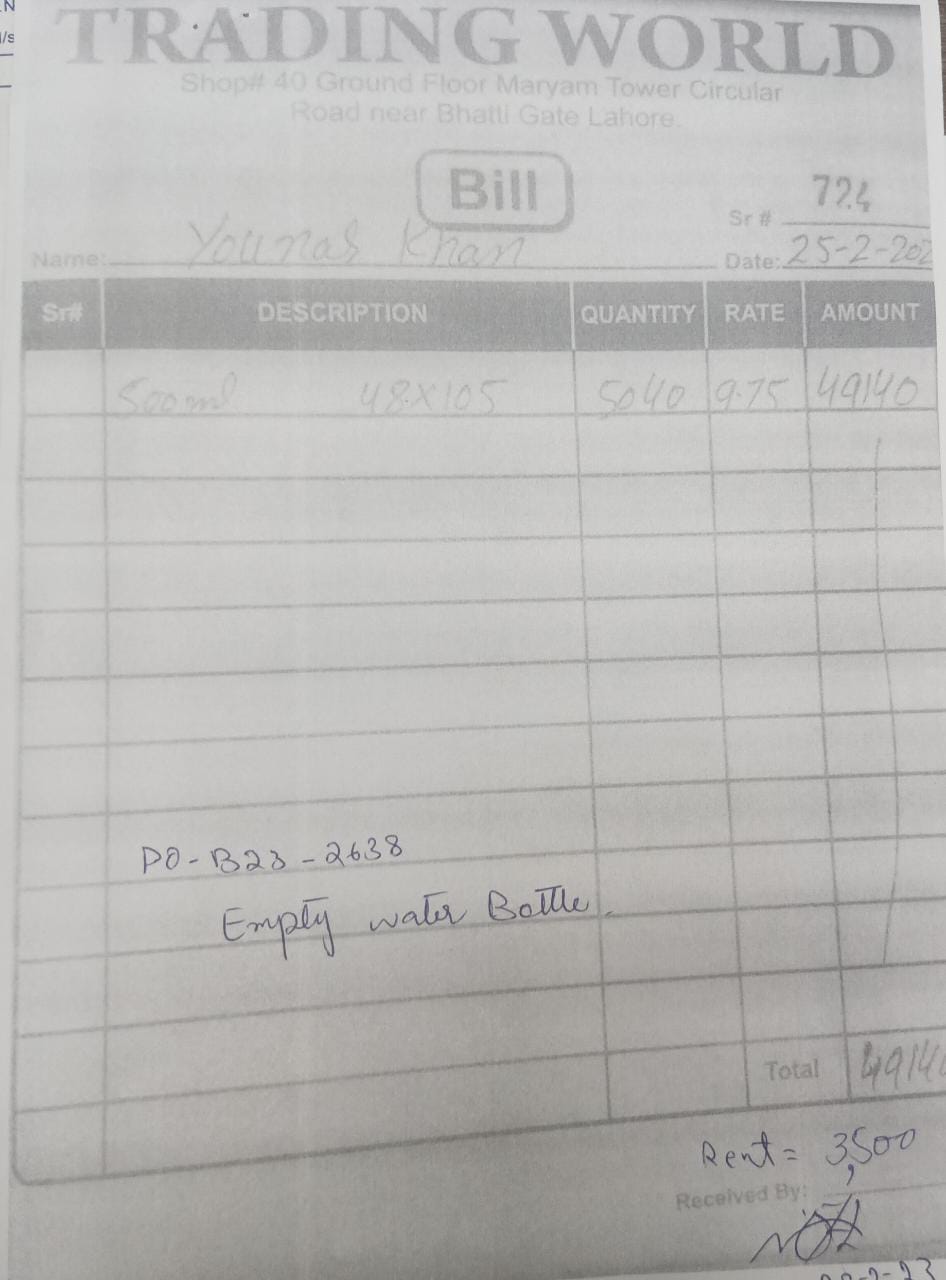 N
/s
TRADING WORLD
Shop# 40 Ground Floor Maryam Tower Circular
Road near Bhatti Gate Lahore.
Bill
Sr # 724
Name: Younas Khan Date: 25-2-202
Sr# DESCRIPTION QUANTITY RATE AMOUNT
500ml 48X105 5040 9.75 49140
PO-B23-2638
Empty water Bottle.
Total 4914
Rent = 3,500
Received By: